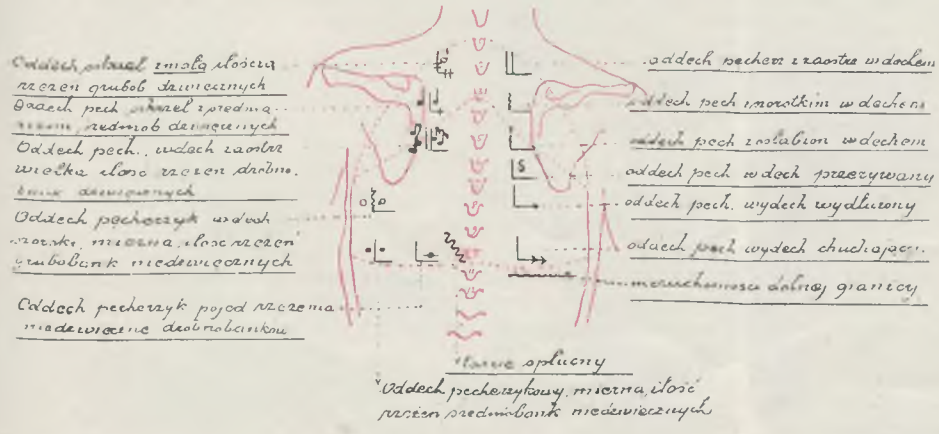 Oddech oskrzel z małą ilością
rzężeń grubob dźwięcznych
Oddech pech oskrzel z średnią
średniob dźwięcznych
Oddech pech., wdech zaostrz
wielka ilość rzężeń drobno.
bank dźwięcznych
Oddech pęcherzyk wdech
szorstki, mierna, ilość rzężeń
grubobank niedźwięcznych
Oddech pecherzyk pojed rzężenia
niedźwięczne drobnobankow
oddech pecherz z zaostrz wdechem
oddech pech szorstkim wdechem
oddech pech z osłabion wdechem
oddech pech wdech przerywany
oddech pech. wydech wydłużony
oddech pech wydech chuchający
nieruchomość dolnej granicy
Tarcie opłucny
Oddech pecherzykowy, mierna, ilość
rzężeń średniobank niedźwięcznych